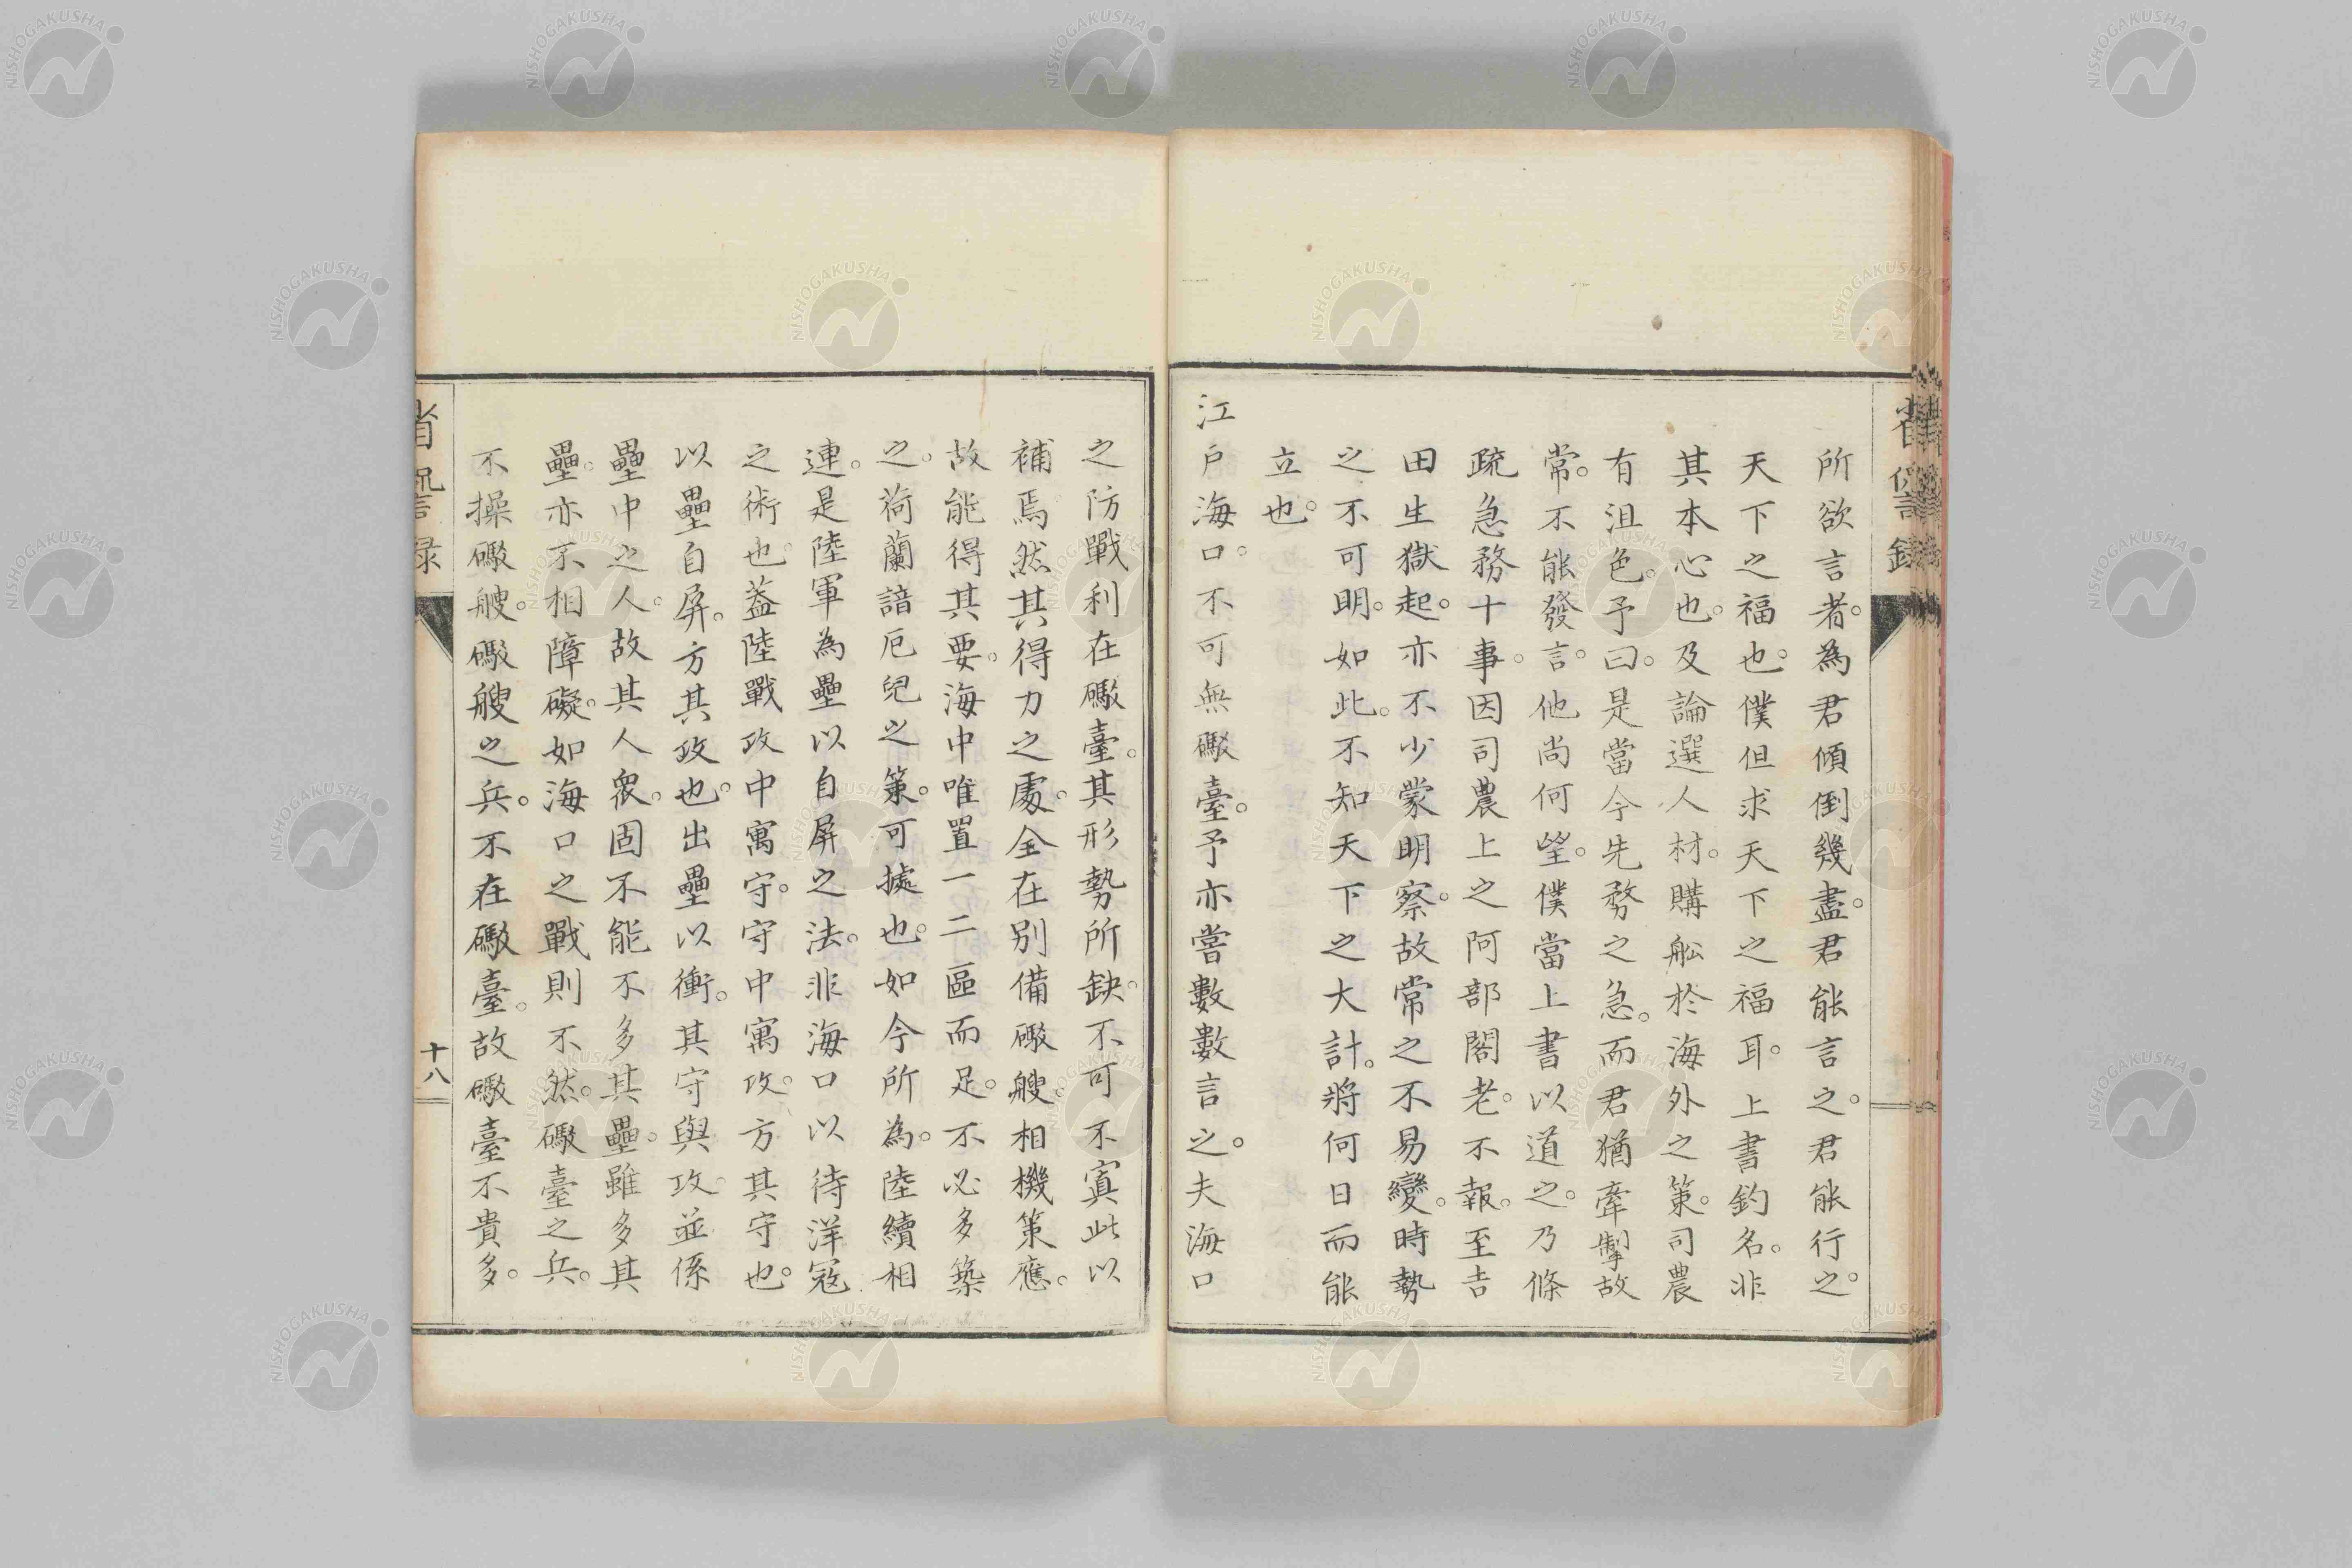 所欲言者。為君傾倒幾盡。君能言之。君能行之。
天下之福也。僕但求天下之福耳。上書釣名。非
其本心也。及論選人材。購舩於海外之策。司農
有沮色。予曰。是當今先務之急。而君猶牽掣故
常。不能發言。他尚何望。僕當上書以道之。乃條
疏急務十事。因司農上之阿部閣老。不報。至吉
田生獄起。亦不少蒙明察。故常之不易變。時勢
之不可明。如此。不知天下之大計。將何日而能
立也。
江戶海口。不可無礮臺。予亦嘗數數言之。夫海口
之防戰利在礮臺。其形勢所缺。不可不寘此以
補焉。然其得力之處。全在別備礮艘。相機策應。
故能得其要。海中唯置一二區而足。不必多築
之。荷蘭諳厄兒之策。可據也。如今所為。陸續相
連。是陸軍為壘以自屏之法。非海口以待洋寇
之術也。蓋陸戰攻中寓守。守中寓攻。方其守也。
以壘自屏。方其攻也。出壘以衝。其守與攻。並係
壘中之人。故其人衆。固不能不多其壘。雖多其
壘。亦不相障礙。如海口之戰則不然。礮臺之兵。
不操礮艘。礮艘之兵。不在礮臺。故礮臺不貴多。
省諐錄
十八
NISHOGAKUSHA